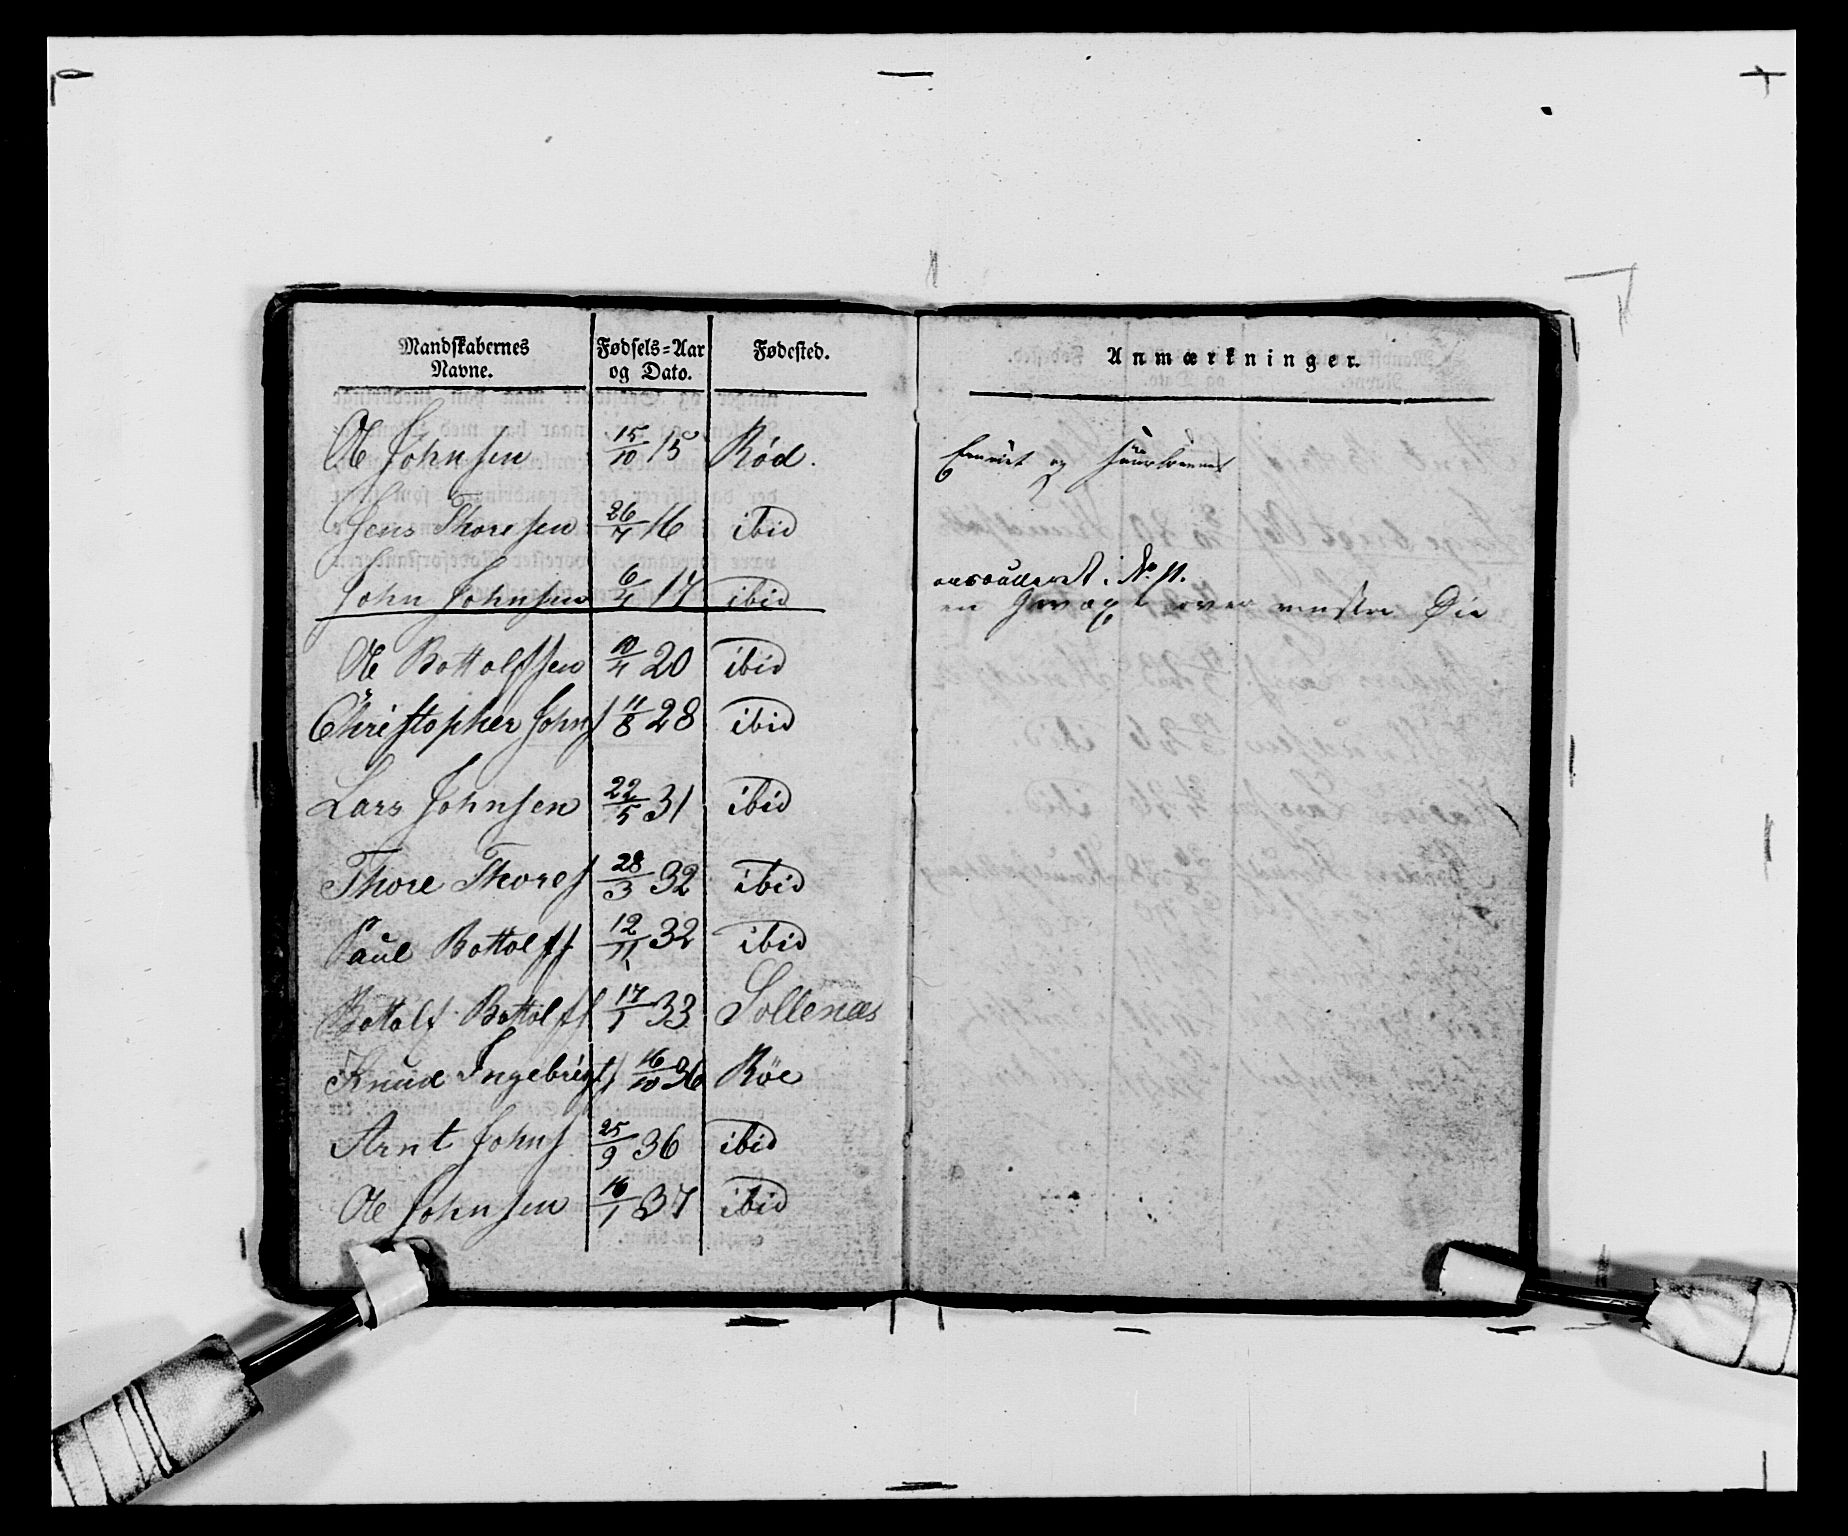 Mandskabernes Navne. Fødsels=Aar og Dato. Fødested. Anmærkninger.
Ole Johnsen 15/10 15 Rød. og
Jens Thoresen 26/7 16 ibid
John Johnsen 6/4 17 ibid No 11.
en over venstre Øie
Ole Bottolfsen 10/4 20 ibid
Christopher Johns 11/8 28 ibid
Lars Johnsen 22/5 31 ibid
Thore Thores 28/3 32 ibid
Paul Bottolfs 12/11 32 ibid
Bottolf Bottolfs 17/1 33 Sollenæs
Knud Ingebrigts 16/10 36 Röe
Arnt Johns 25/9 36 ibid
Ole Johnsen 16/1 37 ibid